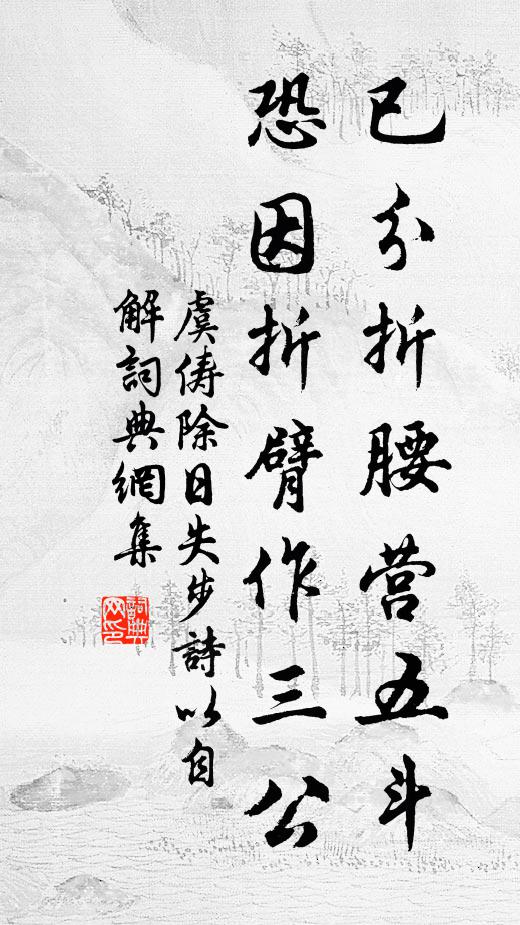 已分折腰营五斗
恐因折臂作三公
虞儔除日失步詩以自
解詞典網集
詞典网印